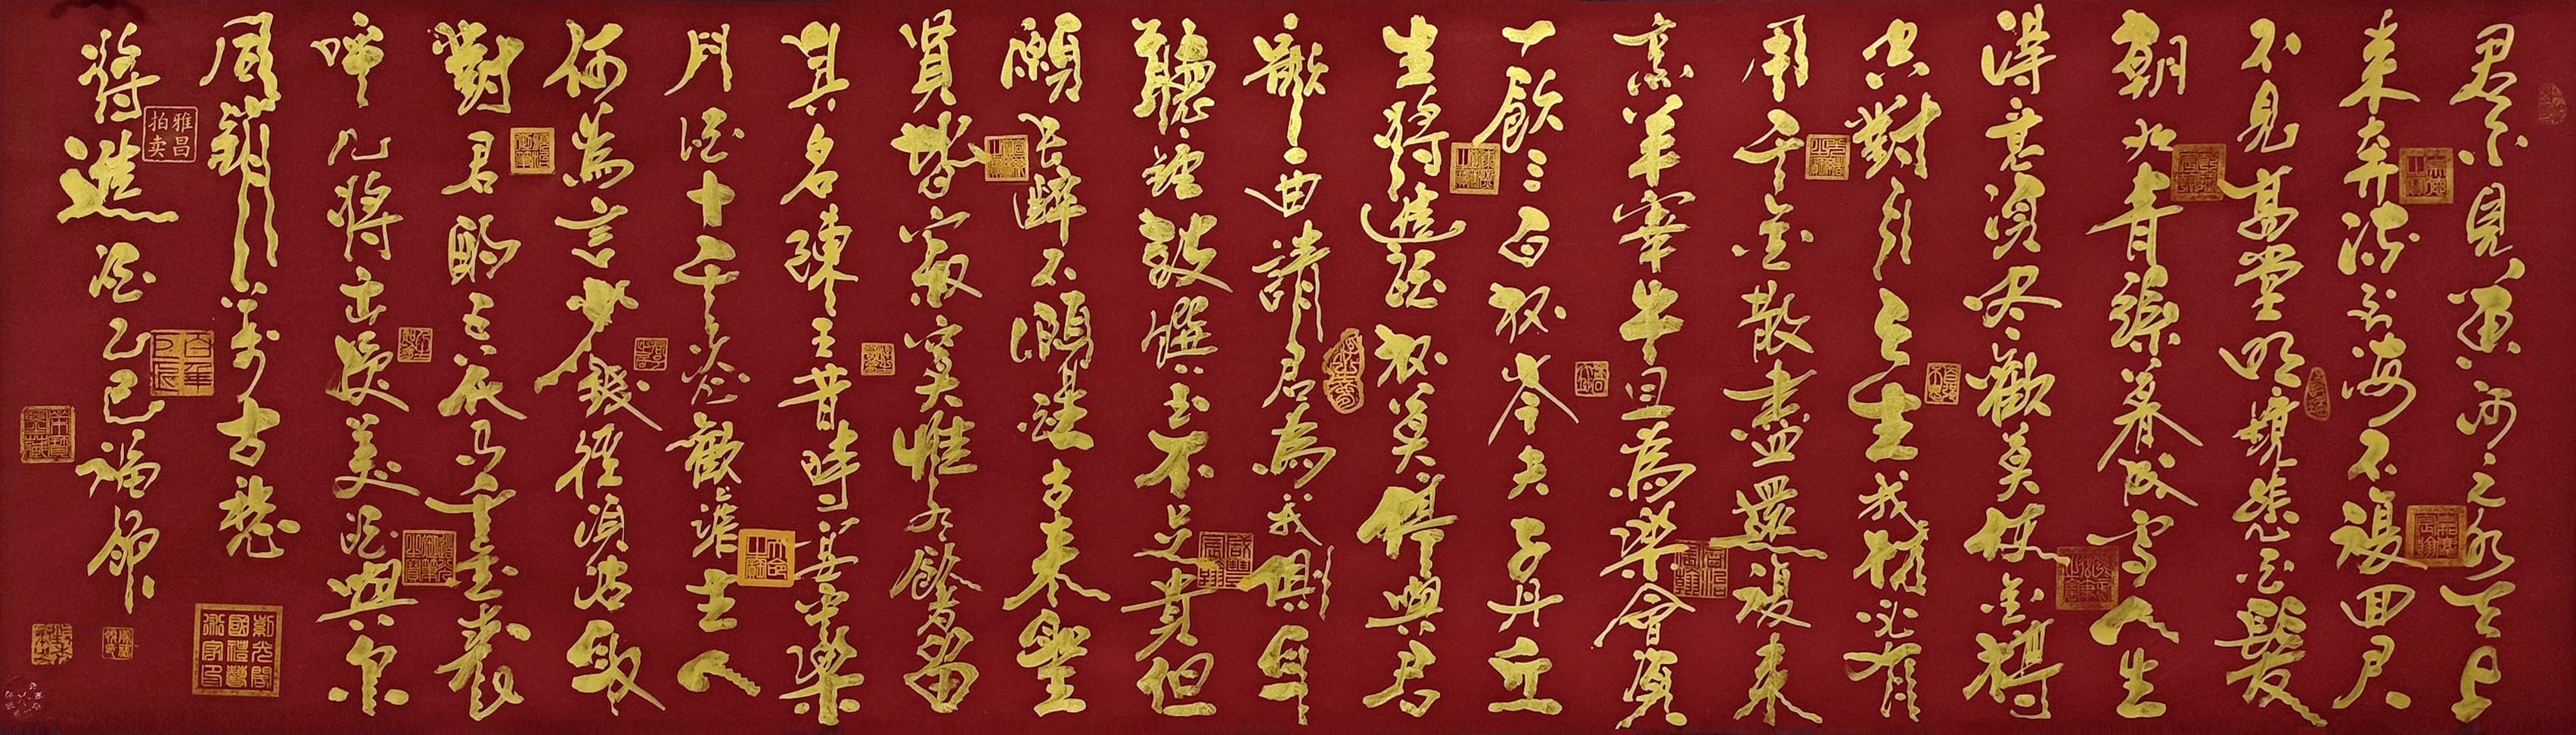 君不見黃河之水天上
来奔流到海不復回君
不見高堂明鏡悲白髮
朝如青絲暮成雪人生
得意須尽歡莫使金樽
空對月天生我材必有
用千金散盡還復来
烹羊宰牛且為樂會須
一飲三百杯岑夫子丹丘
生將進酒杯莫停與君
歌一曲請君為我側耳
聽鐘鼓饌玉不足貴但
願長醉不願醒古来聖
賢皆寂寞惟有飲者留
其名陳王昔時宴平樂
斗酒十千恣歡謔主人
何為言少錢徑須沽取
對君酌五花馬千金裘
呼兒將出換美酒與尔
同銷萬古愁
將進酒乙巳
雅昌拍卖